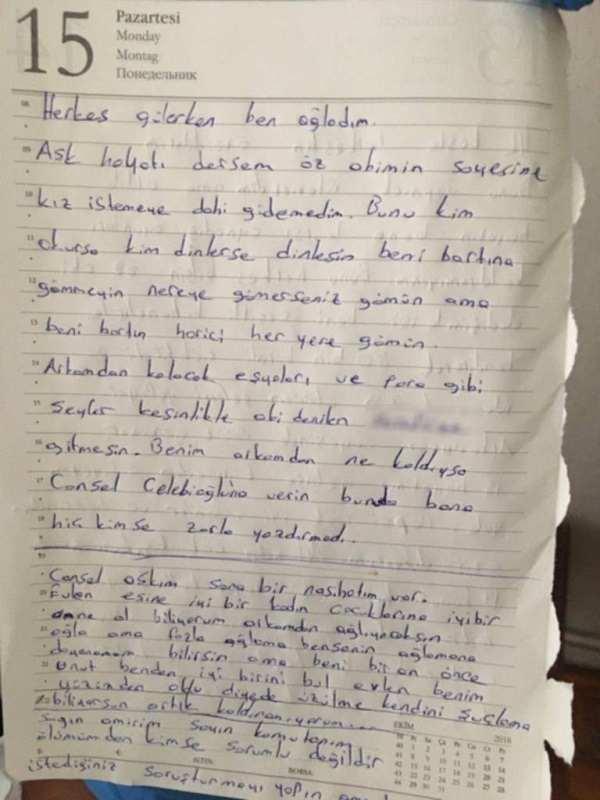 15
Pazartesi
Monday
Montag
Понедельник
Herkes gülerken ben ağladım.
Aşk hayatı dersem öz abimin sayesine
kız istemeye dahi gidemedim. Bunu kim
okursa kim dinlerse dinlesin beni bartına
gömmeyin nereye gömerseniz gömün ama
beni bartın harici her yere gömün.
Arkamdan kalacak eşyaları ve para gibi
şeyler kesinlikle abi denilen
gitmesin. Benim arkamdan ne kaldıysa
Cansel Çelebioğluna verin bunda bana
hiç kimse zorla yazdırmadı..
Cansel aşkım sana bir nasihatım var.
Evlen eşine iyi bir kadın çocuklarına iyi bir
anne ol biliyorum arkamdan ağlıyacaksın
ağla ama fazla ağlama bensenin ağlamana
dayanamam bilirsin ama beni bir an önce
Unut benden iyi birini bul evlen benim
yüzümden oldu diyede üzülme kendini suçlama
biliyorsun artık kaldıramıyorum...
Sayın amirim Sayın komutanım
ölümümden kimse sorumlu değildir
istediğiniz soruşturmayı yapın
EKİM 2018
ALTIN:
BORSA: